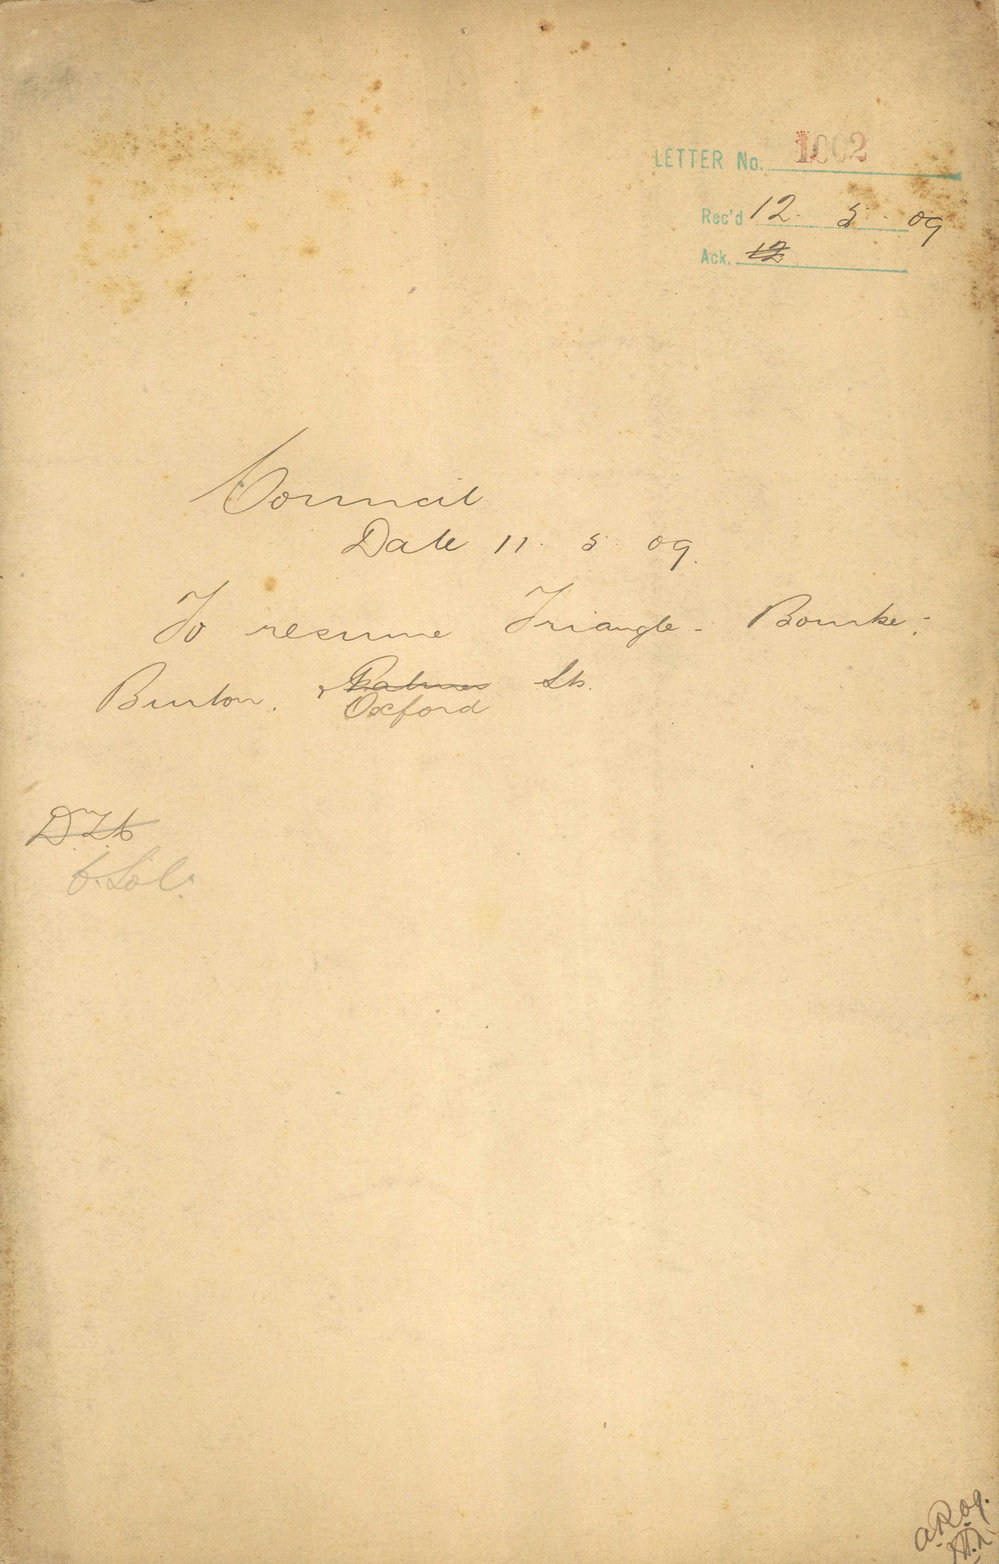 LETTER No. 1002
Rec'd 12. 5. 09
Ack. 12
Council
Date 11. 5. 09.
To resume Triangle - Bourke,
Burton, & Palmer Sts.
Oxford
D.T.C
C. Sol.